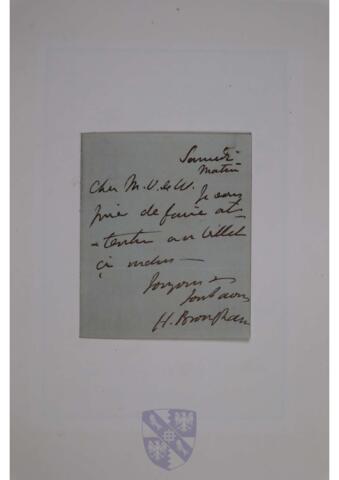 Samedi
Matin
Cher M. V. de W. Je vous
prie de faire at-
-tention au billet
ci inclus —
Toujours
H. Brougham